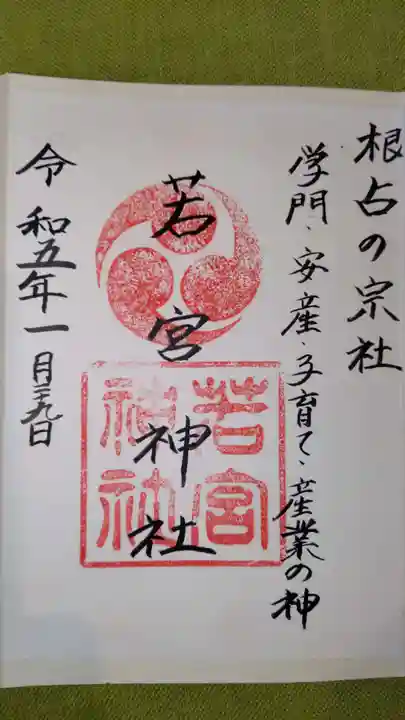 根占の宗社
学門・安産・子育て・産業の神
若宮神社
若宮神社
令和五年一月二九日